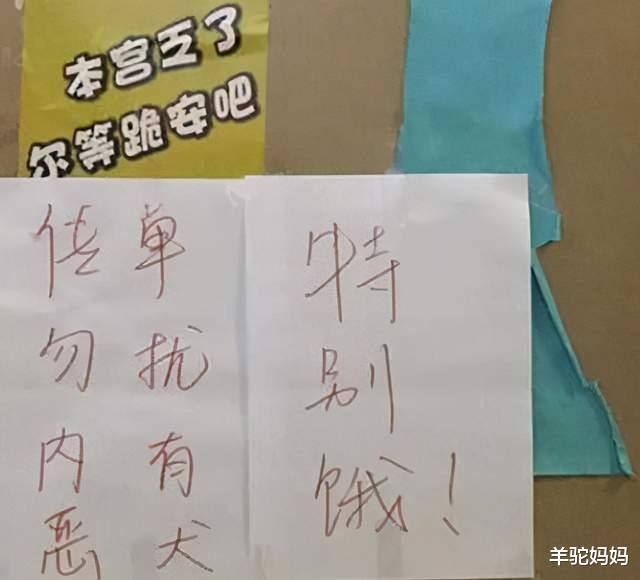 本宫乏了
尔等跪安吧
传单
勿扰
内有
恶犬
特
别
饿！
羊驼妈妈